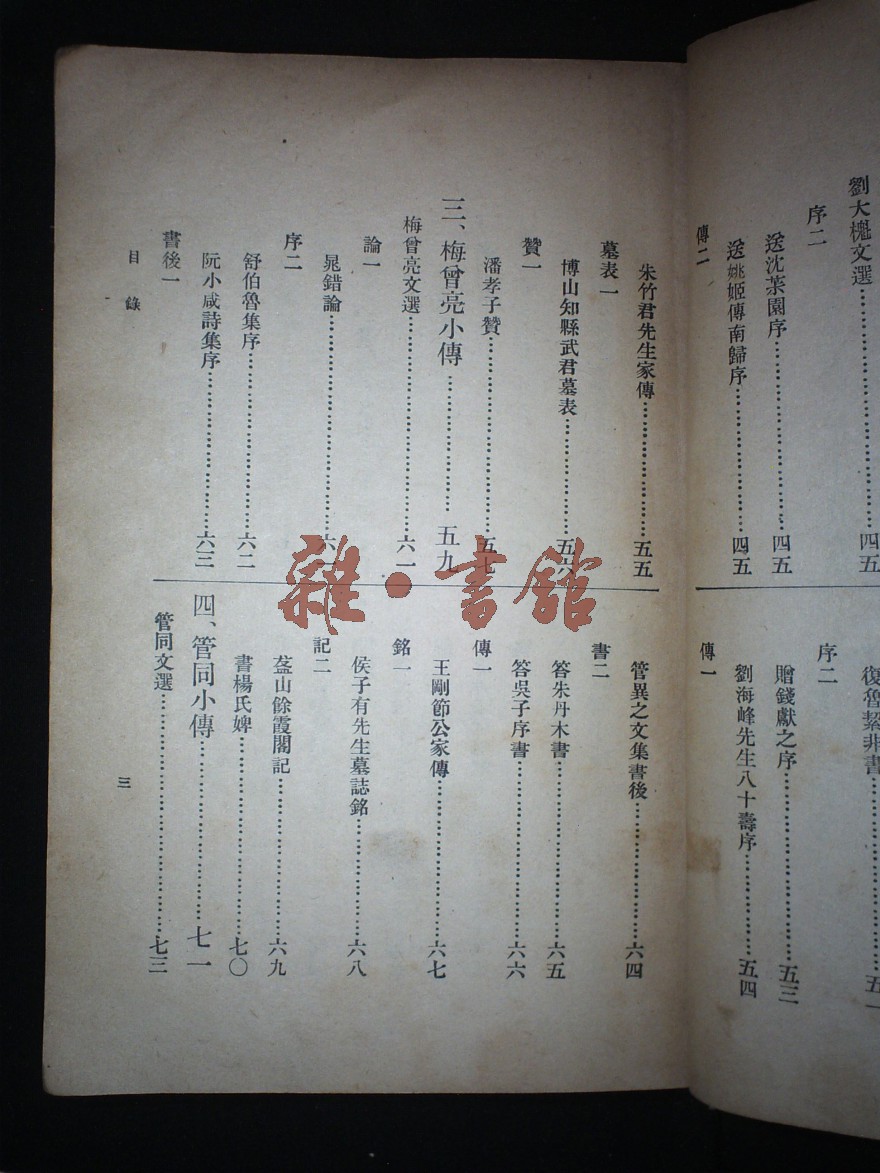 劉大櫆文選……四五
序二
送沈茮園序……四五
送姚姬傳南歸序……四五
傳二
復魯絜非書……五一
序二
贈錢獻之序……五三
劉海峰先生八十壽序……五四
傳一
朱竹君先生家傳……五五
墓表一
博山知縣武君墓表……五六
贊一
潘孝子贊……五七
三、梅曾亮小傳……五九
梅曾亮文選……六一
論一
晁錯論……六
序二
舒伯魯集序……六二
阮小咸詩集序……六三
書後一
管異之文集書後……六四
書二
答朱丹木書……六五
答吳子序書……六六
傳一
王剛節公家傳……六七
銘一
侯子有先生墓誌銘……六八
記二
盋山餘霞閣記……六九
書楊氏婢……七〇
四、管同小傳……七一
管同文選……七三
目錄
三
雜·書館